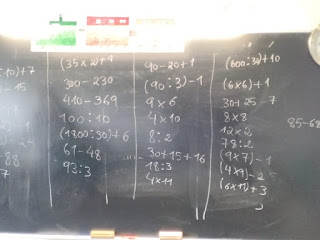 :10)+7
- 15
88
7
(35×2)+1
300-230
410-369
100:10
(1800:30)+6
61-48
93:3
90-20+1
(90:3)-1
9×6
4×10
8:2
30+15+16
18:3
4×11
(600:30)+10
(6×6)+1
30+25-7
8×8
12×2
78:2
(9×7)-1
(4×9)-2
(6×11)+3
85-68